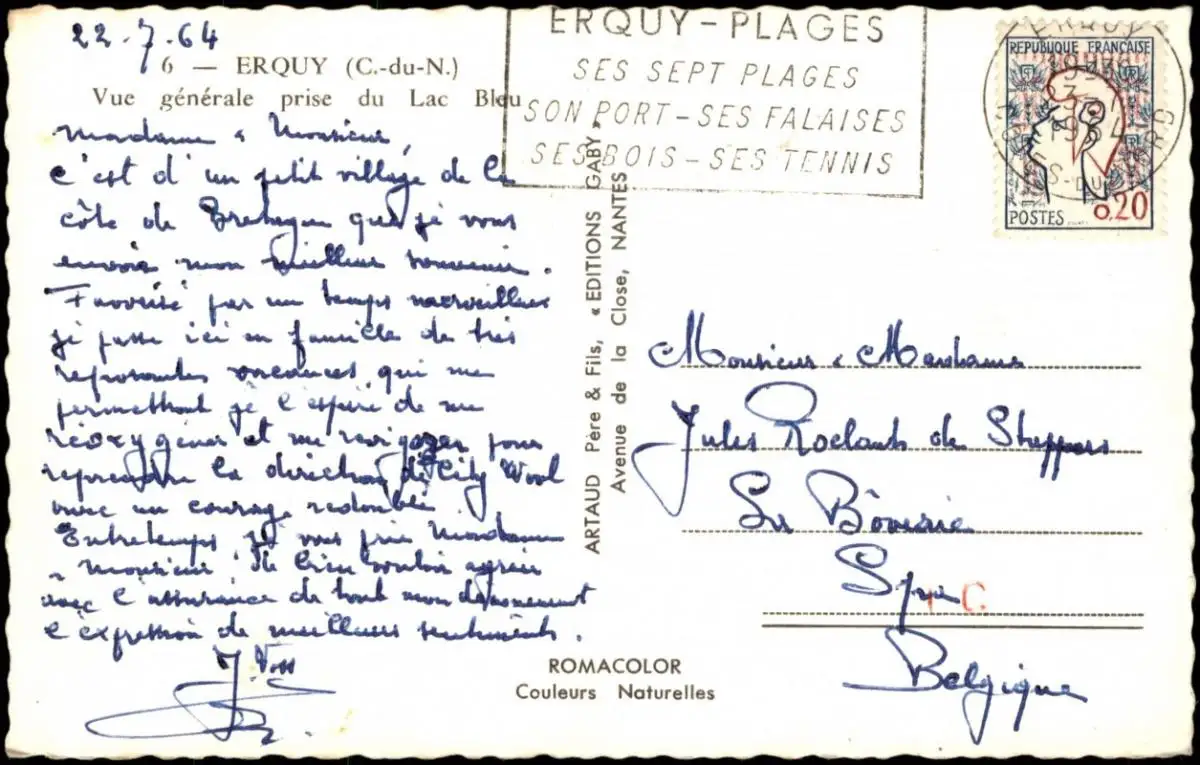 22.7.64
6 — ERQUY (C.-du-N.)
Vue générale prise du Lac Bleu
Madame & Monsieur,
C'est d'un petit village de la
côte de Bretagne que je vous
envoie mon meilleur souvenir.
Favorisé par un temps merveilleux
je passe ici en famille de très
reposantes vacances qui me
permettront je l'espère de me
réoxygéner et me revigorer pour
reprendre la direction de City Wool
avec un courage redoublé
Entretemps je vous prie Madame
& Monsieur de bien vouloir agréer
avec l'assurance de tout mon dévouement
l'expression de meilleurs sentiments.
ERQUY – PLAGES
SES SEPT PLAGES
SON PORT – SES FALAISES
SES BOIS – SES TENNIS
ERQUY
REPUBLIQUE FRANÇAISE
POSTES
0,20
ARTAUD Père & Fils, « EDITIONS GABY »
Avenue de la Close, NANTES
Monsieur & Madame
Jules Roelants de Stappers
Spa
Belgique
ROMACOLOR
Couleurs Naturelles